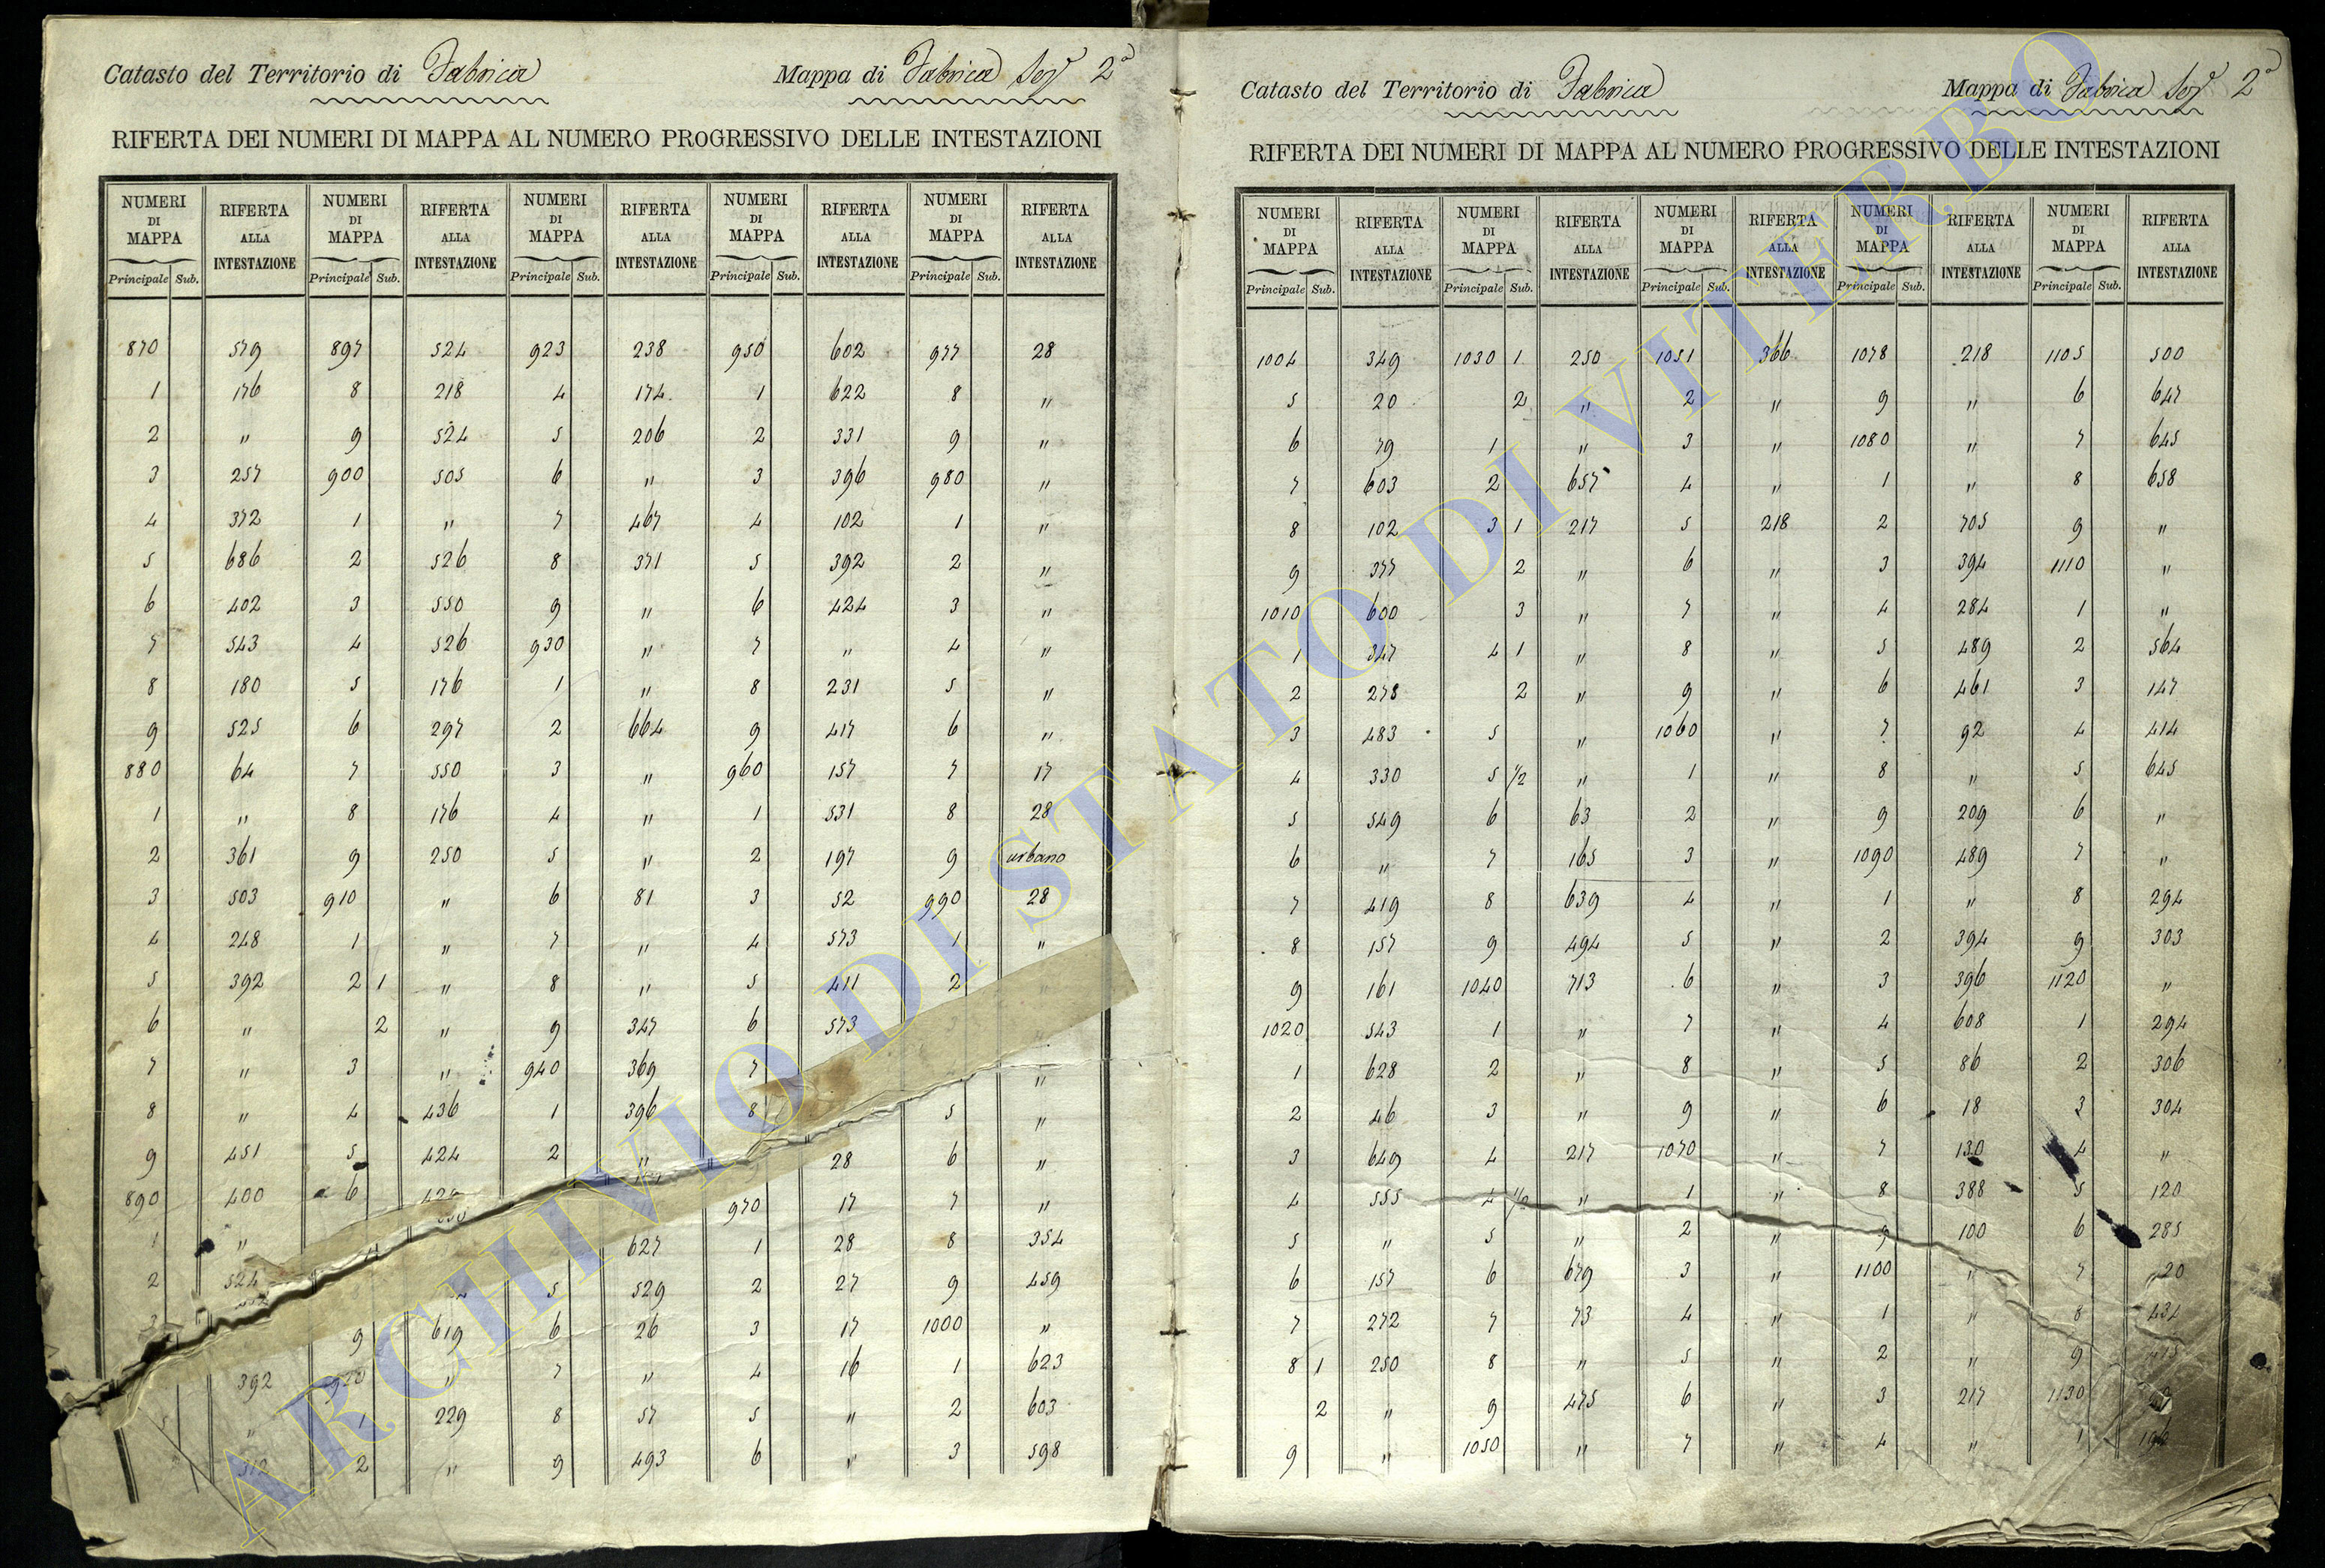 Catasto del Territorio di Fabrica Mappa di Fabrica Sez.e 2a
RIFERTA DEI NUMERI DI MAPPA AL NUMERO PROGRESSIVO DELLE INTESTAZIONI
NUMERI DI MAPPA RIFERTA ALLA INTESTAZIONE NUMERI DI MAPPA RIFERTA ALLA INTESTAZIONE NUMERI DI MAPPA RIFERTA ALLA INTESTAZIONE NUMERI DI MAPPA RIFERTA ALLA INTESTAZIONE NUMERI DI MAPPA RIFERTA ALLA INTESTAZIONE
Principale Sub. Principale Sub. Principale Sub. Principale Sub. Principale Sub.
870 579 897 524 923 238 950 602 977 28
1 176 8 218 4 174 1 622 8 "
2 " 9 524 5 206 2 331 9 "
3 257 900 505 6 " 3 396 980 "
4 372 1 " 7 467 4 102 1 "
5 686 2 526 8 371 5 392 2 "
6 402 3 550 9 " 6 424 3 "
7 543 4 526 930 " 7 " 4 "
8 180 5 176 1 " 8 231 5 "
9 525 6 297 2 664 9 417 6 "
880 64 7 550 3 " 960 157 7 17
1 " 8 176 4 " 1 531 8 28
2 361 9 250 5 " 2 197 9 urbano
3 503 910 " 6 81 3 52 990 28
4 248 1 " 7 " 4 573 1 "
5 392 2 1 " 8 " 5 411 2
6 " 2 " 9 347 6 573
7 " 3 " 940 369 7 "
8 " 4 436 1 396 8 5 "
9 451 5 424 2 " 28 6 "
890 400 6 970 17 7 "
1 " 627 1 28 8 354
2 524 5 529 2 27 9 459
9 619 6 26 3 17 1000 "
392 920 " 7 " 4 16 1 623
" 1 229 8 57 5 " 2 603
512 2 " 9 493 6 " 3 598
Catasto del Territorio di Fabrica Mappa di Fabrica Sez.e 2a
RIFERTA DEI NUMERI DI MAPPA AL NUMERO PROGRESSIVO DELLE INTESTAZIONI
NUMERI DI MAPPA RIFERTA ALLA INTESTAZIONE NUMERI DI MAPPA RIFERTA ALLA INTESTAZIONE NUMERI DI MAPPA RIFERTA ALLA INTESTAZIONE NUMERI DI MAPPA RIFERTA ALLA INTESTAZIONE NUMERI DI MAPPA RIFERTA ALLA INTESTAZIONE
Principale Sub. Principale Sub. Principale Sub. Principale Sub. Principale Sub.
1004 349 1030 1 250 1051 366 1078 218 1105 500
5 20 2 " 2 " 9 " 6 647
6 79 1 " 3 " 1080 " 7 645
7 603 2 657 4 " 1 " 8 658
8 102 3 1 217 5 218 2 705 9 "
9 377 2 " 6 " 3 394 1110 "
1010 600 3 " 7 " 4 284 1 "
1 347 4 1 " 8 " 5 489 2 564
2 278 2 " 9 " 6 461 3 147
3 483 5 " 1060 " 7 92 4 414
4 330 5 1/2 " 1 " 8 " 5 645
5 549 6 63 2 " 9 209 6 "
6 " 7 165 3 " 1090 489 7 "
7 419 8 639 4 " 1 " 8 294
8 157 9 494 5 " 2 394 9 303
9 161 1040 713 6 " 3 396 1120 "
1020 543 1 " 7 " 4 608 1 294
1 628 2 " 8 " 5 86 2 306
2 46 3 " 9 " 6 18 3 304
3 649 4 217 1070 " 7 130 4 "
4 555 4 1/2 " 1 " 8 388 5 120
5 " 5 " 2 " 9 100 6 285
6 157 6 679 3 " 1100 " 7 20
7 272 7 73 4 " 1 " 8 434
8 1 250 8 " 5 " 2 " 9
2 " 9 475 6 " 3 217 1130
9 " 1050 " 7 " 4 " 1
ARCHIVIO DI STATO DI VITERBO